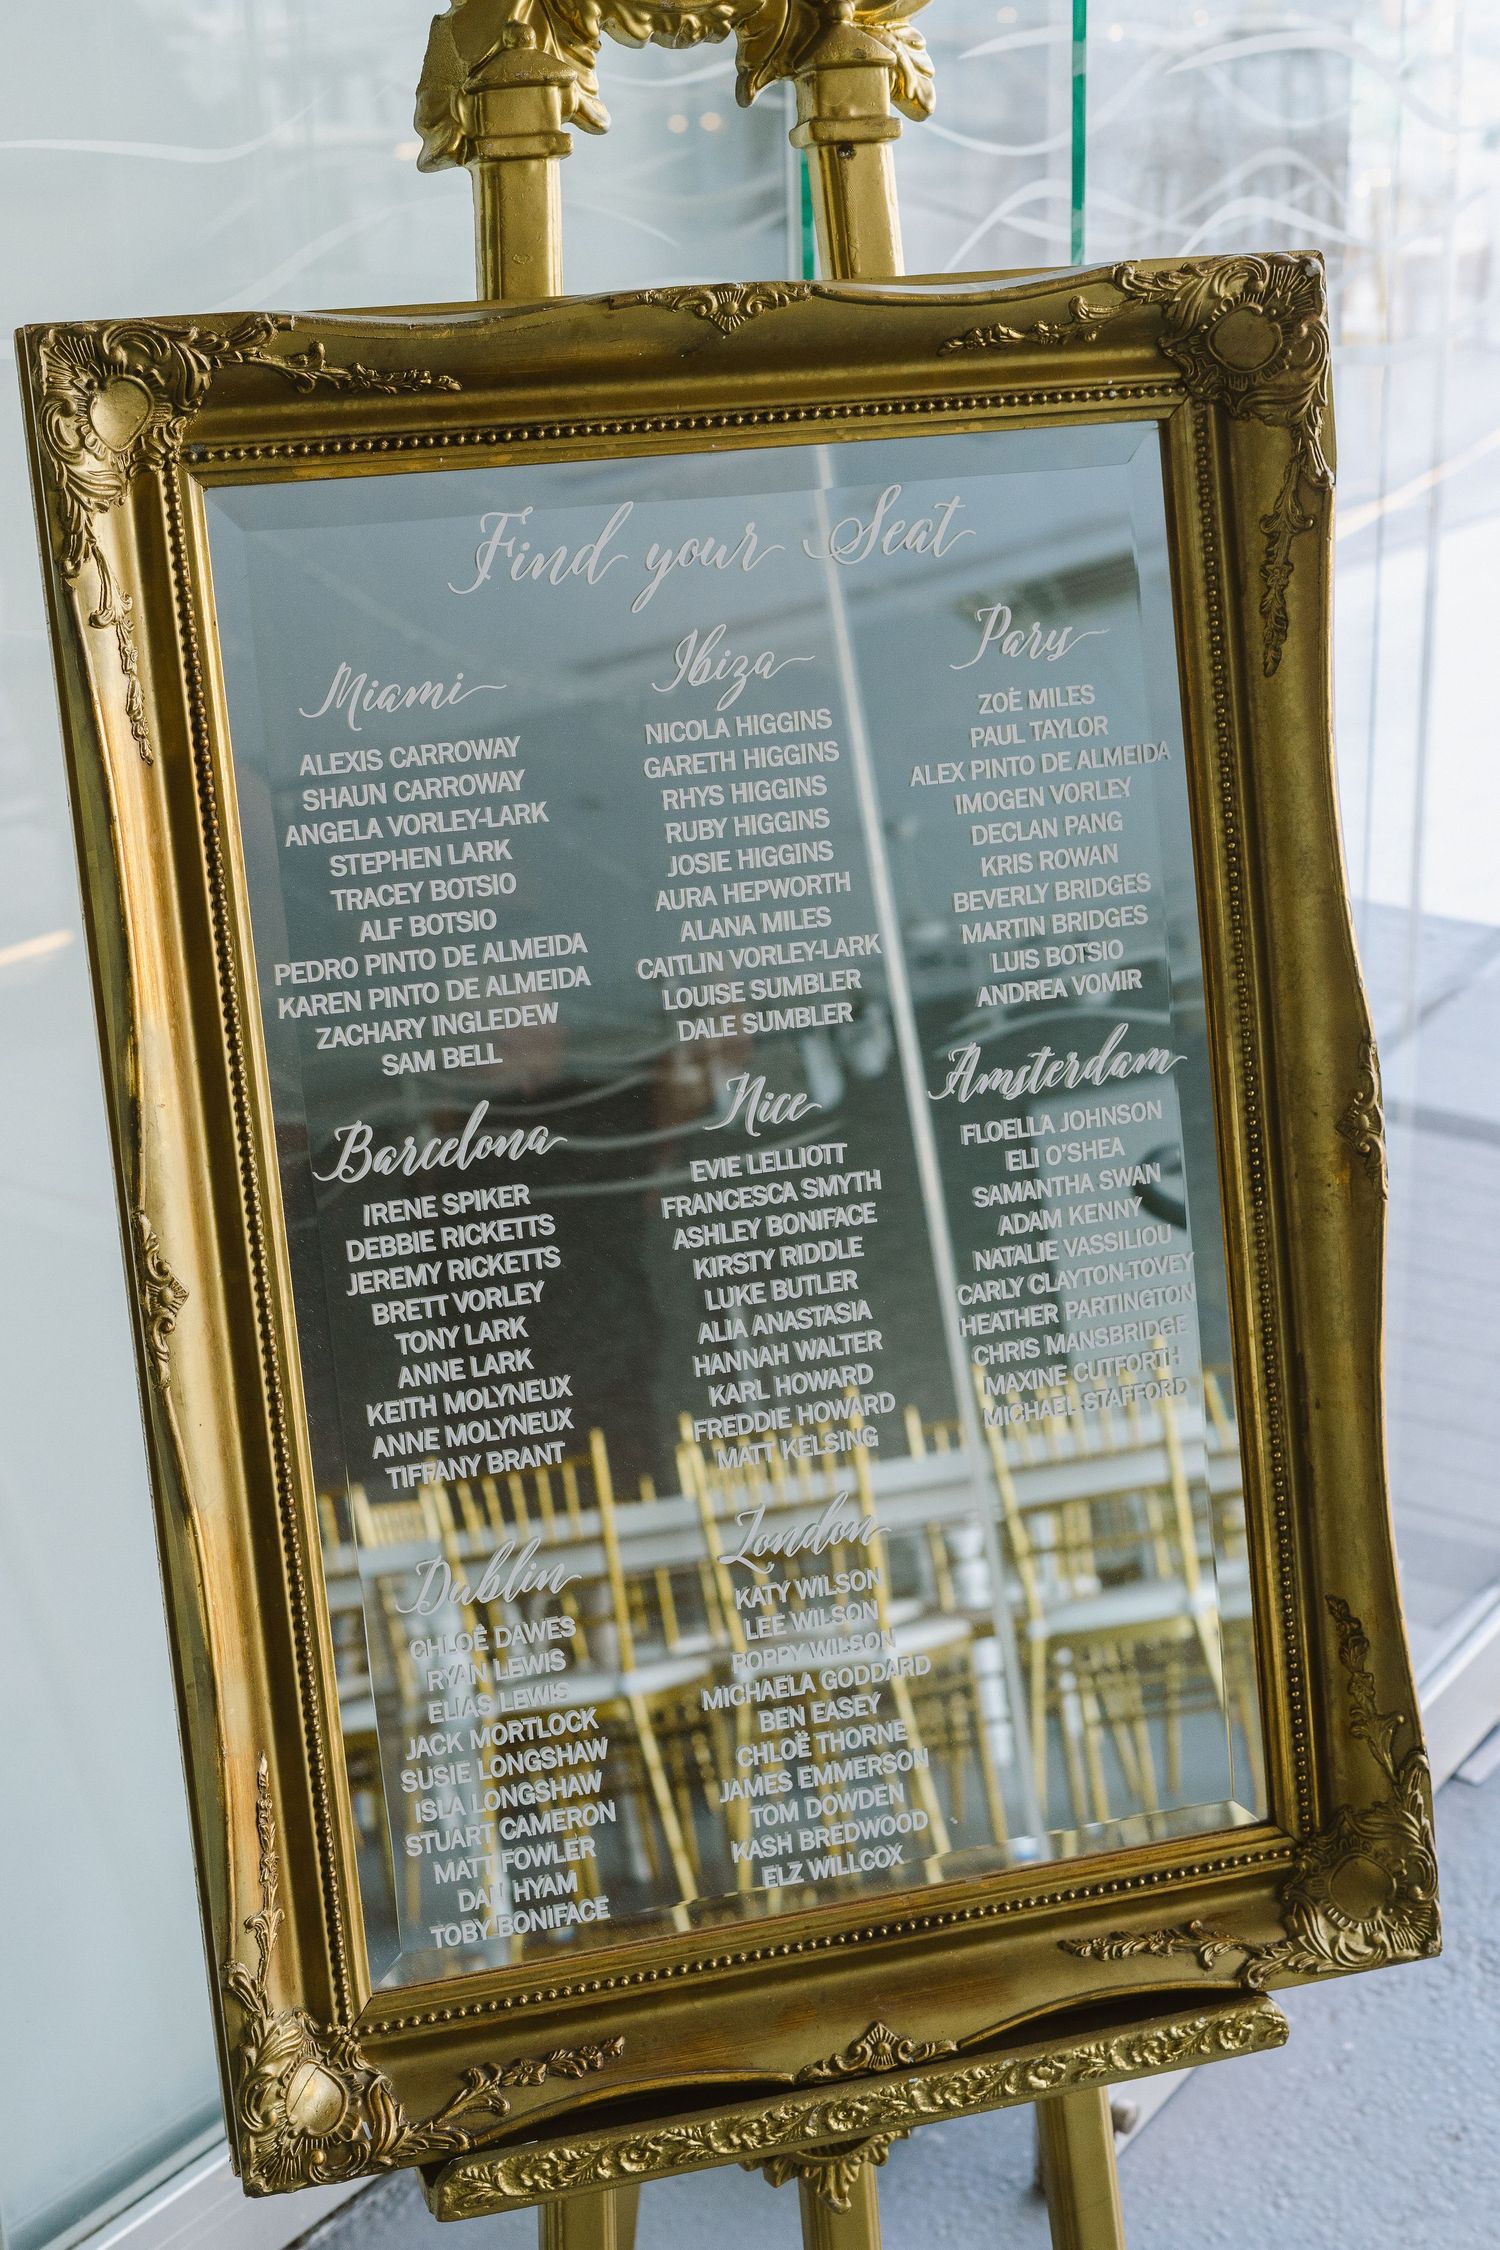 Find your Seat
Miami
ALEXIS CARROWAY
SHAUN CARROWAY
ANGELA VORLEY-LARK
STEPHEN LARK
TRACEY BOTSIO
ALF BOTSIO
PEDRO PINTO DE ALMEIDA
KAREN PINTO DE ALMEIDA
ZACHARY INGLEDEW
SAM BELL
Ibiza
NICOLA HIGGINS
GARETH HIGGINS
RHYS HIGGINS
RUBY HIGGINS
JOSIE HIGGINS
AURA HEPWORTH
ALANA MILES
CAITLIN VORLEY-LARK
LOUISE SUMBLER
DALE SUMBLER
Parys
ZOË MILES
PAUL TAYLOR
ALEX PINTO DE ALMEIDA
IMOGEN VORLEY
DECLAN PANG
KRIS ROWAN
BEVERLY BRIDGES
MARTIN BRIDGES
LUIS BOTSIO
ANDREA VOMIR
Barcelona
IRENE SPIKER
DEBBIE RICKETTS
JEREMY RICKETTS
BRETT VORLEY
TONY LARK
ANNE LARK
KEITH MOLYNEUX
ANNE MOLYNEUX
TIFFANY BRANT
Nice
EVIE LELLIOTT
FRANCESCA SMYTH
ASHLEY BONIFACE
KIRSTY RIDDLE
LUKE BUTLER
ALIA ANASTASIA
HANNAH WALTER
KARL HOWARD
FREDDIE HOWARD
MATT KELSING
Amsterdam
FLOELLA JOHNSON
ELI O'SHEA
SAMANTHA SWAN
ADAM KENNY
NATALIE VASSILIOU
CARLY CLAYTON-TOVEY
HEATHER PARTINGTON
CHRIS MANSBRIDGE
MAXINE CUTFORTH
MICHAEL STAFFORD
Dublin
CHLOË DAWES
RYAN LEWIS
ELIAS LEWIS
JACK MORTLOCK
SUSIE LONGSHAW
ISLA LONGSHAW
STUART CAMERON
MATT FOWLER
DAN HYAM
TOBY BONIFACE
London
KATY WILSON
LEE WILSON
POPPY WILSON
MICHAELA GODDARD
BEN EASEY
CHLOË THORNE
JAMES EMMERSON
TOM DOWDEN
KASH BREDWOOD
ELZ WILLCOX